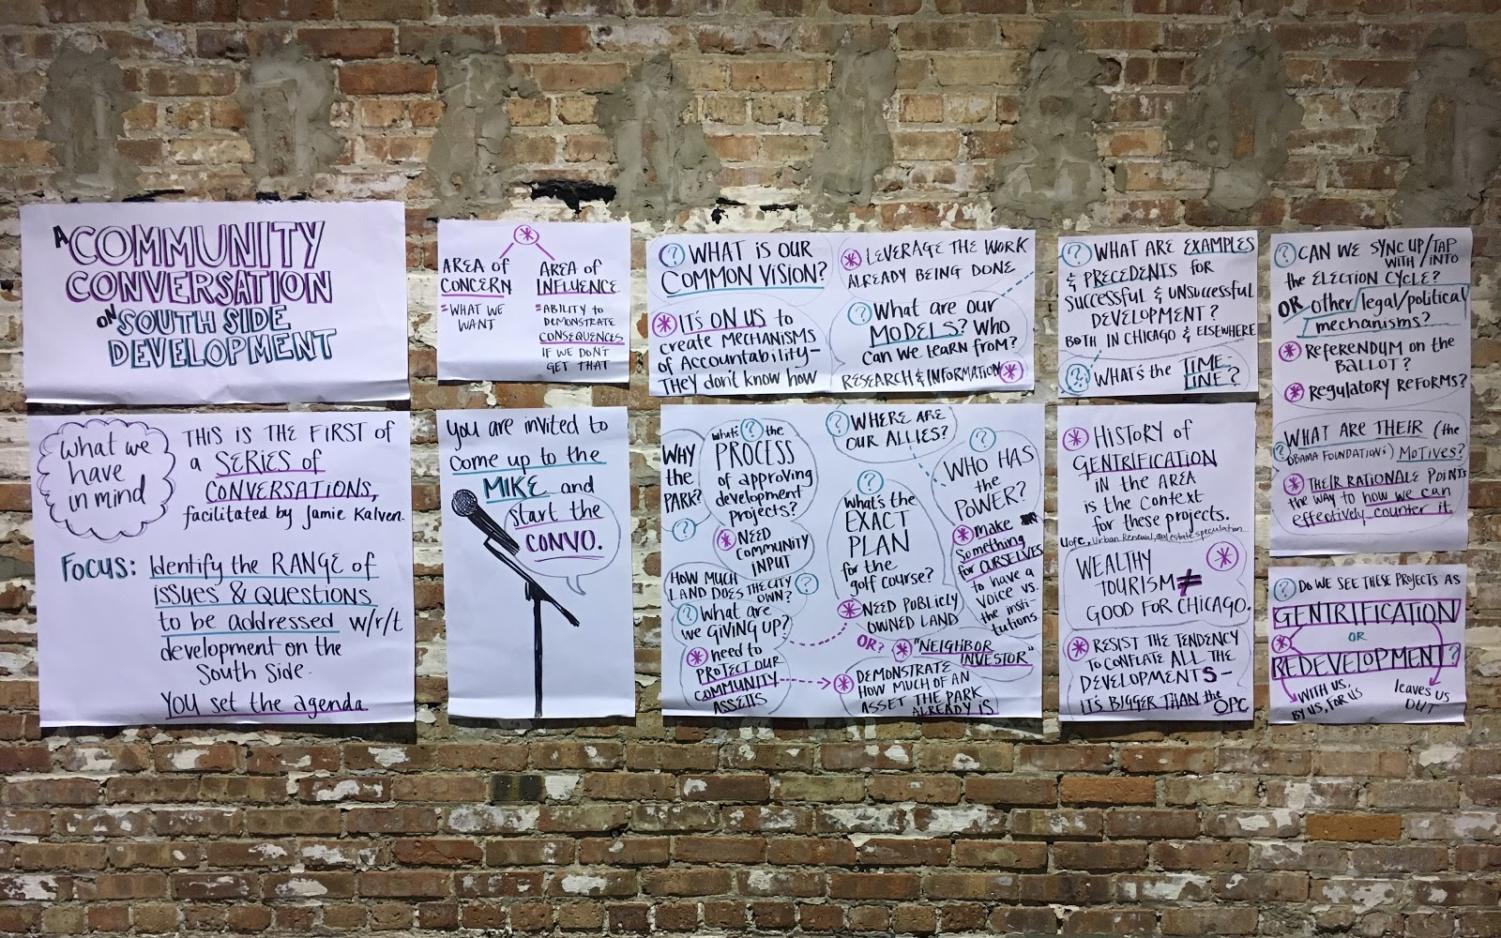 A COMMUNITY
CONVERSATION
ON SOUTH SIDE
DEVELOPMENT
What we
have
in mind
THIS IS THE FIRST of
a SERIES of
CONVERSATIONS,
facilitated by Jamie Kalven.
FOCUS: Identify the RANGE of
issues & QUESTIONS
to be addressed w/r/t
development on the
South Side.
YOU set the agenda
AREA of
CONCERN
= WHAT WE
WANT
AREA of
INFLUENCE
= ABILITY to
DEMONSTRATE
CONSEQUENCES
IF WE DON'T
GET THAT
you are invited to
come up to the
MIKE and
start the
CONVO.
? WHAT IS OUR
COMMON VISION?
IT'S ON US to
create MECHANISMS
of Accountability-
THEY don't know how
LEVERAGE THE WORK
ALREADY BEING DONE
? What are our
MODELS? Who
can we learn from?
RESEARCH & INFORMATION
WHY
the
PARK?
?
What's ? the
PROCESS
of approving
development
projects?
NEED
COMMUNITY
INPUT
HOW MUCH
LAND DOES THE CITY
OWN? ?
? What are
we GIVING UP?
need to
PROTECT OUR
COMMUNITY
ASSETS
? WHERE ARE
OUR ALLIES?
?
What's the
EXACT
PLAN
for the
golf course?
NEED PUBLICLY
OWNED LAND
OR? "NEIGHBOR
INVESTOR"
DEMONSTRATE
HOW MUCH OF AN
ASSET THE PARK
ALREADY IS
?
WHO HAS
the
POWER?
make
Something
for OURSELVES
to have a
voice vs.
the insti-
tutions
? WHAT ARE EXAMPLES
& PRECEDENTS for
successful & unsuccessful
DEVELOPMENT?
BOTH IN CHICAGO & ELSEWHERE
? WHAT'S the TIME-
LINE?
HISTORY of
GENTRIFICATION
IN the AREA
is the context
for these projects.
UofC, Urban Renewal, real estate speculation
WEALTHY
TOURISM ≠
GOOD FOR CHICAGO.
RESIST THE TENDENCY
TO CONFLATE ALL THE
DEVELOPMENTS -
IT'S BIGGER THAN the
OPC
? CAN WE SYNC UP/TAP
WITH / INTO
the ELECTION CYCLE?
OR other legal/political
mechanisms?
Referendum on the
BALLOT?
Regulatory Reforms?
WHAT ARE THEIR (the
? OBAMA FOUNDATION's) MOTIVES?
THEIR RATIONALE POINTS
the WAY to how we can
effectively counter it
? DO WE SEE THESE PROJECTS AS
GENTRIFICATION
OR
REDEVELOPMENT?
WITH US,
BY US, FOR US
leaves us
OUT